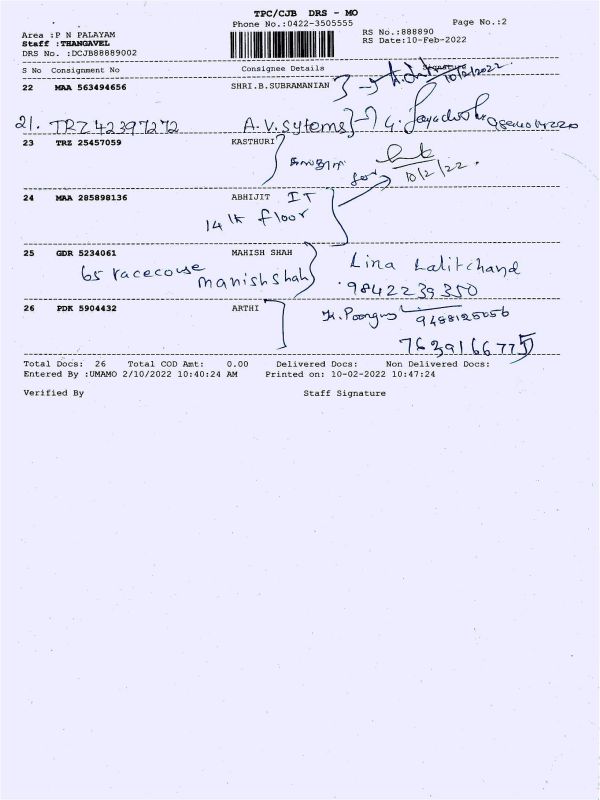 TPC/CJB DRS - MO
Phone No.:0422-3505555
Page No.:2
Area :P N PALAYAM
RS No.:888890
Staff :THANGAVEL
RS Date:10-Feb-2022
DRS No. :DCJB88889002
S No Consignment No Consignee Details Signature
22 MAA 563494656 SHRI.B.SUBRAMANIAN
10/2/2022
21. TRZ 42397272 A.V.Sytems
23 TRZ 25457059 KASTHURI
for
10/2/22.
24 MAA 285898136 ABHIJIT IT
14 th floor
25 GDR 5234061 MAHISH SHAH
65 racecouse manishshah
Lina Lalitchand
9842239350
26 PDK 5904432 ARTHI
9488125056
7639166775
Total Docs: 26 Total COD Amt: 0.00 Delivered Docs: Non Delivered Docs:
Entered By :UMAMO 2/10/2022 10:40:24 AM Printed on: 10-02-2022 10:47:24
Verified By Staff Signature